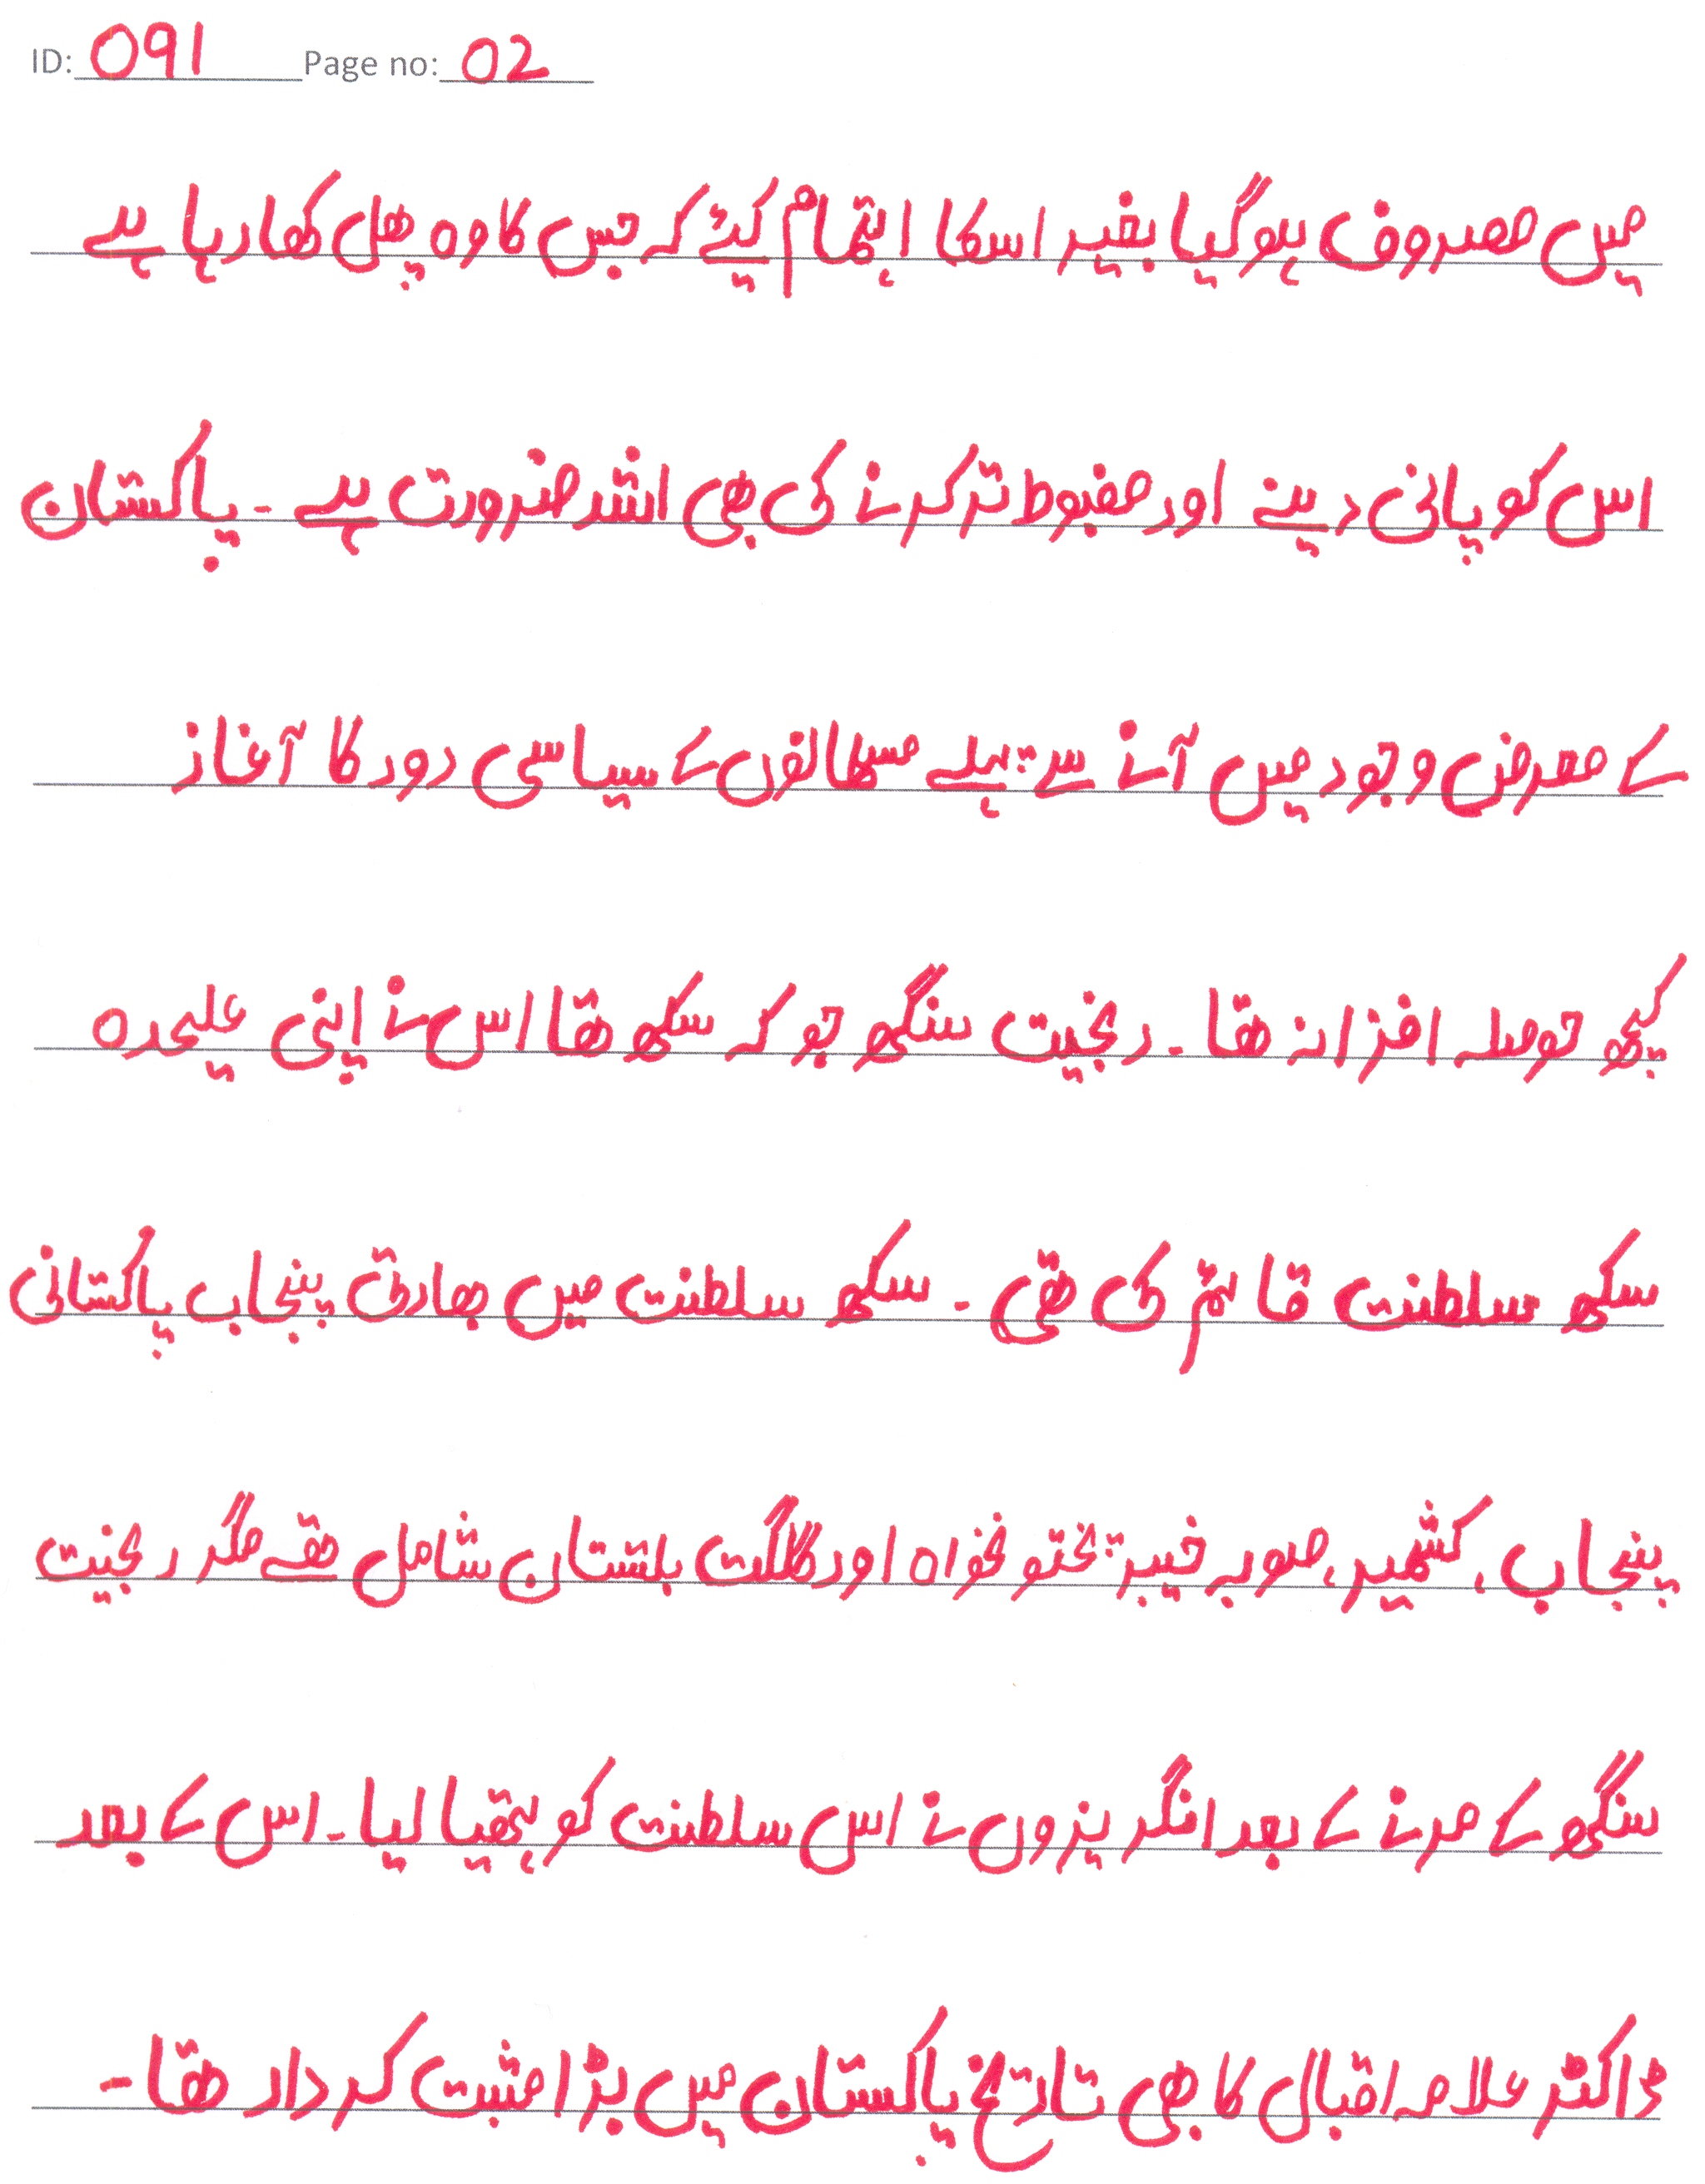 ID: 091 Page no: 02
میں مصروف ہوگیا بغیر اسکا اہتمام کیئے کہ جس کا وہ پھل کھا رہا ہے
اس کو پانی دینے اور مضبوط تر کرنے کی بھی اشد ضرورت ہے ۔ پاکستان
کے معرض وجود میں آنے سے پہلے مسلمانوں کے سیاسی دور کا آغاز
کچھ حوصلہ افزا نہ تھا ۔ رنجیت سنگھ جو کہ سکھ تھا اس نے اپنی علیحدہ
سکھ سلطنت قائم کی تھی ۔ سکھ سلطنت میں بھارتی پنجاب پاکستانی
پنجاب، کشمیر، صوبہ خیبر پختو نخواہ اور گلگت بلتستان شامل تھے مگر رنجیت
سنگھ کے مرنے کے بعد انگریزوں نے اس سلطنت کو ہتھیا لیا ۔ اس کے بعد
ڈاکٹر علامہ اقبال کا بھی تاریخ پاکستان میں بڑا مثبت کردار تھا ۔